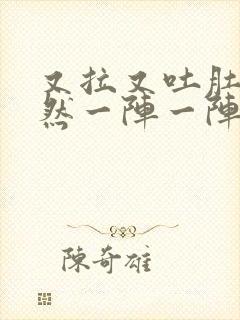 又拉又吐肚
然一陣一陣
陳奇雄